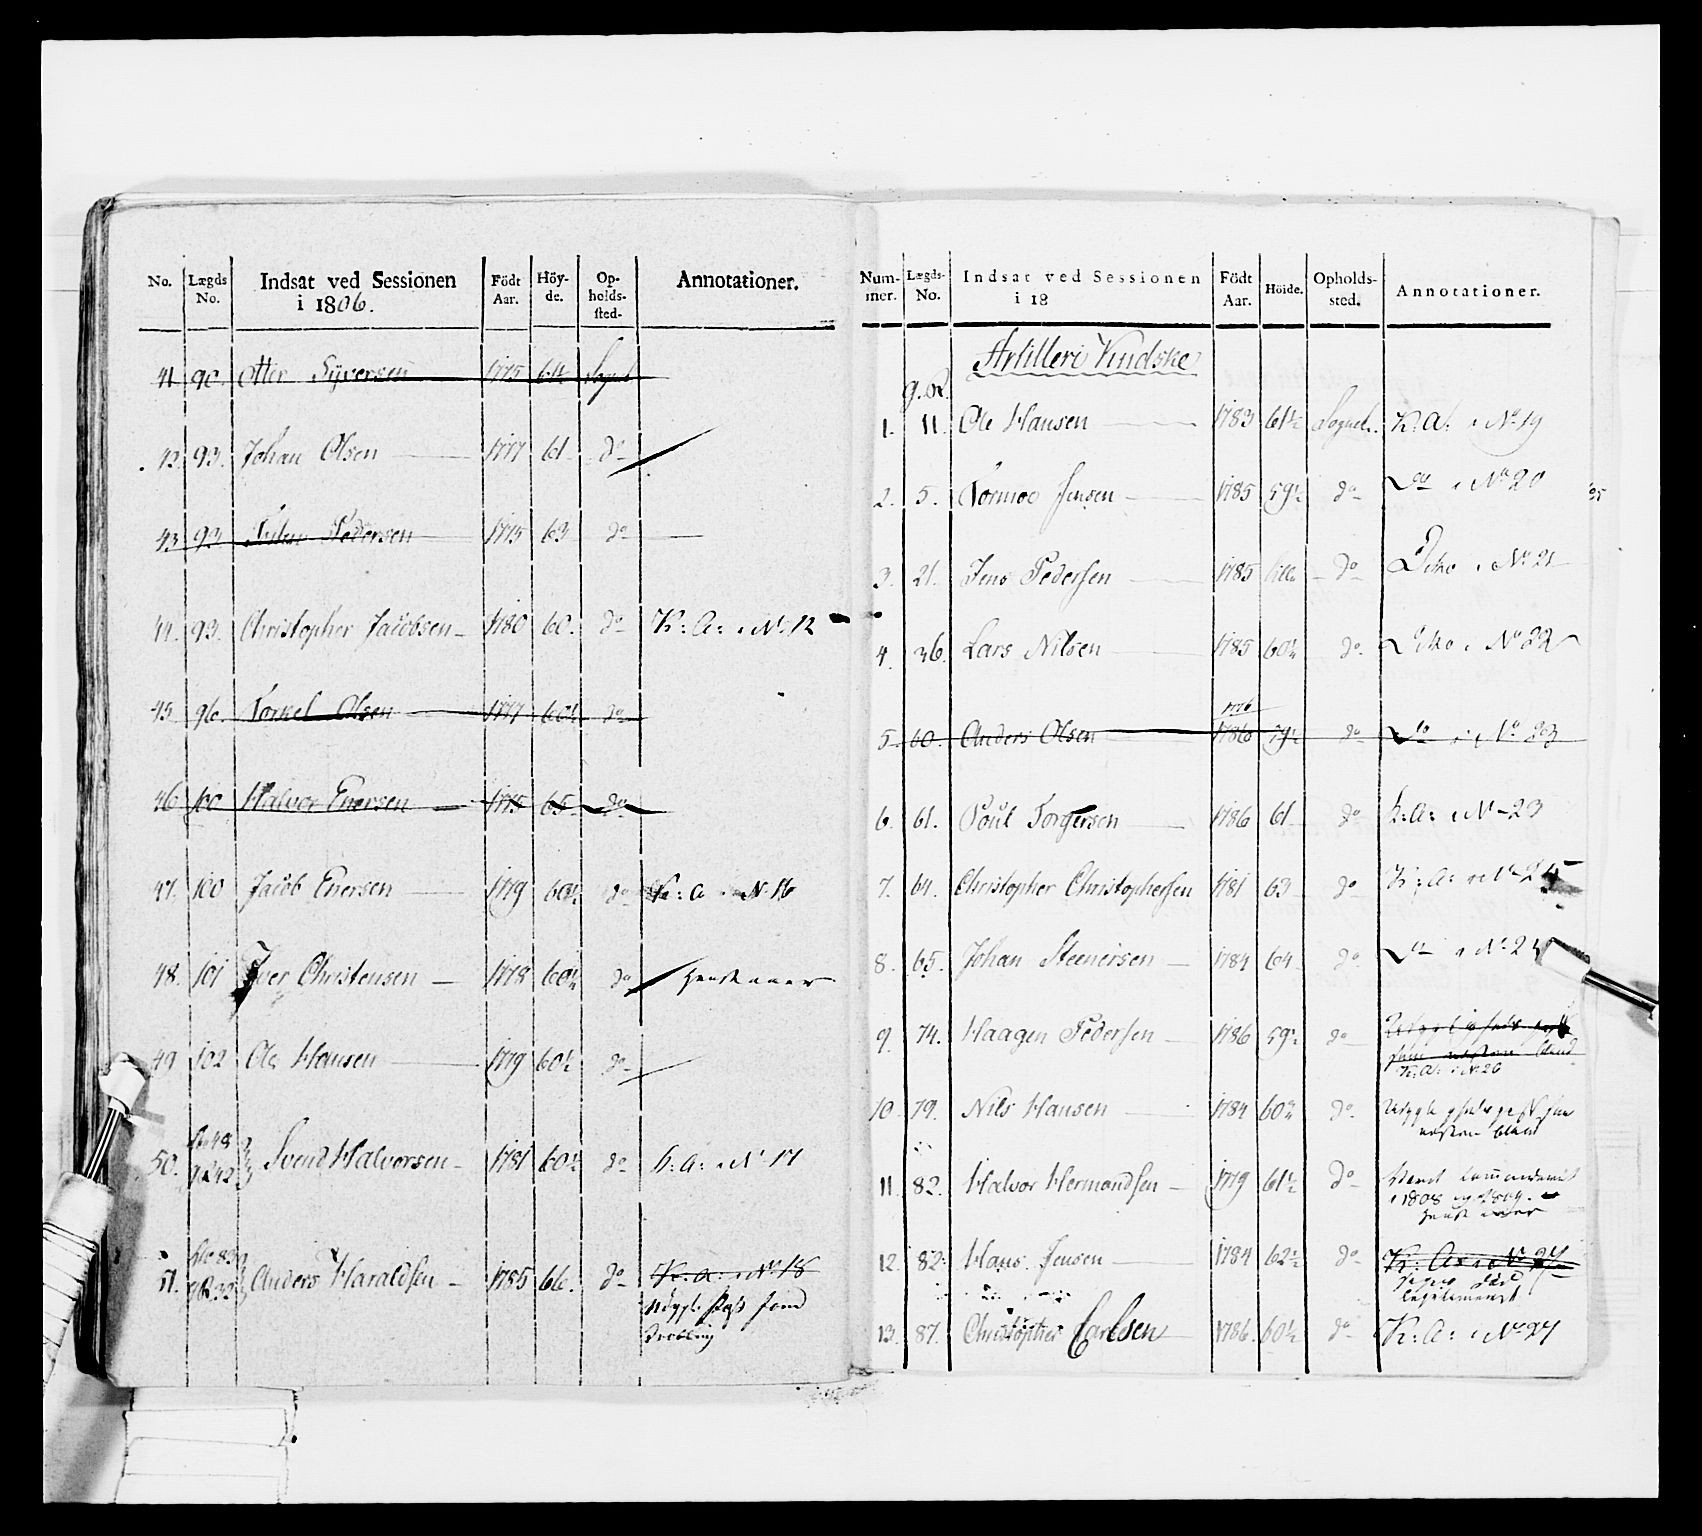 No. Lægds No. Indsat ved Sessionen i 1806. Födt Aar. Höyde. Opholdssted. Annotationer.
41 90. Otter Syversen 1775 64 Sognet
42. 93. Johan Olsen 1777 61 do
43 93 Pedersen 1775 63 do
44. 93. Christopher Jacobsen 1780 60. do K: A: i No 12
45. 96. Torkel Olsen 1777 60½ do
46 100 Halvor Enersen 1775 65 do
47. 100 Jacob Enersen 1779 60½ do K: A i No 16
48. 101 Iver Christensen 1778 60½ do
49 102 Ole Hansen 1779 60½ do
50. Svend Halvorsen 1781 60½ do K: A: i No 17
51. Anders Haraldsen 1785 66. do K: A: i No 18
Nummer. Lægds-No. Indsat ved Sessionen i 18 Födt Aar. Höide. Opholdssted. Annotationer.
Artilleri Kudske
g. R.
1. 11. Ole Hansen 1783 61½ Sognet. K: A: i No 19
2. 5. Tormoe Jensen 1785 59½ do Do i No 20
3. 21. Jens Pedersen 1785 do Dito i No 21
4. 36. Lars Nilsen 1785 60½ do Dito i No 22
1776
5. 60. Anders Olsen 1786 do Do i No 23
6. 61. Poul Torgersen 1786 61 do K: A: i No 23
7. 64. Christopher Christophersen 1781 63 do K: A: i No 24
8. 65. Johan Steenersen 1784 64 do Do i No 25
9. 74. Haagen Pedersen 1786 59½ do
K: A: i No 26
10. 79. Nils Hansen 1784 60½ do
11. 82. Halvor Hermandsen 1779 61½ do
i 1808 og 1809.
12. 82. Hans Jensen 1784 62½ do K: A: i No 27
13. 87. Christopher Carlsen 1786. 60½ do K: A: i No 27